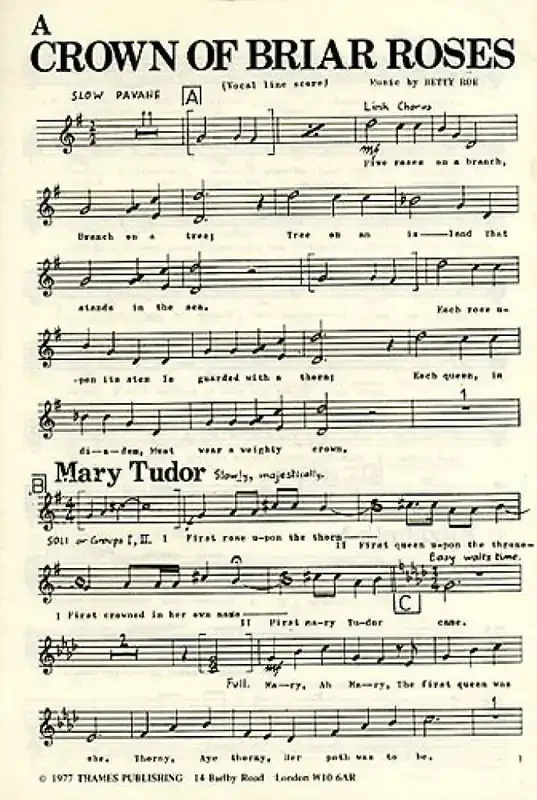 A
CROWN OF BRIAR ROSES
(Vocal line score) Music by BETTY ROE
SLOW PAVANE A
Link Chorus
11
mf
Five roses on a branch,
Branch on a tree; Tree on an is——land That
stands in the sea. Each rose u-
-pon its stem Is guarded with a thorn; Each queen, in
1
di-a-dem, Must wear a weighty crown.
B Mary Tudor Slowly, majestically.
SOLI or Groups I, II. I First rose u-pon the thorn—— II First queen u-pon the throne—
Easy waltz time.
I First crowned in her own name—— II First Ma-ry Tu-dor came.
C
2
mf
Full. Ma-ry, Ah Ma-ry, The first queen was
1
she. Thorny, Aye thorny, Her path was to be.
© 1977 THAMES PUBLISHING 14 Barlby Road London W10 6AR